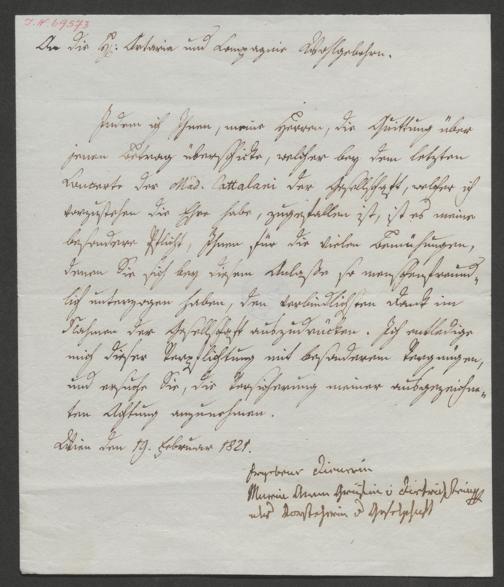 I. N 69573
An die H: Artaria und Compagnie Wohlgebohrn.
Indem ich Ihnen, meine Herren, die Quittung über
jenen Betrag überschicke, welcher bey dem letzten
Concerte der Mad. Cattalani der Gesellschaft, welcher ich
vorzustehen die Ehre habe, zugefallen ist, ist es meine
besondere Pflicht, Ihnen für die vielen Bemühungen,
denen Sie sich bey diesem Anlaße so menschenfreund-
lich unterzogen haben, den verbindlichsten Dank im
Nahmen der Gesellschaft auszudrücken. Ich entledige
mich dieser Verpflichtung mit besonderem Vergnügen,
und ersuche Sie, die Versicherung meiner ausgezeichne-
ten Achtung anzunehmen.
Wien den 19. Februar 1821.
Ergebene Dienerin
Maria Anna Gräfin v Dietrichstein
als Vorsteherin d Gesellschaft